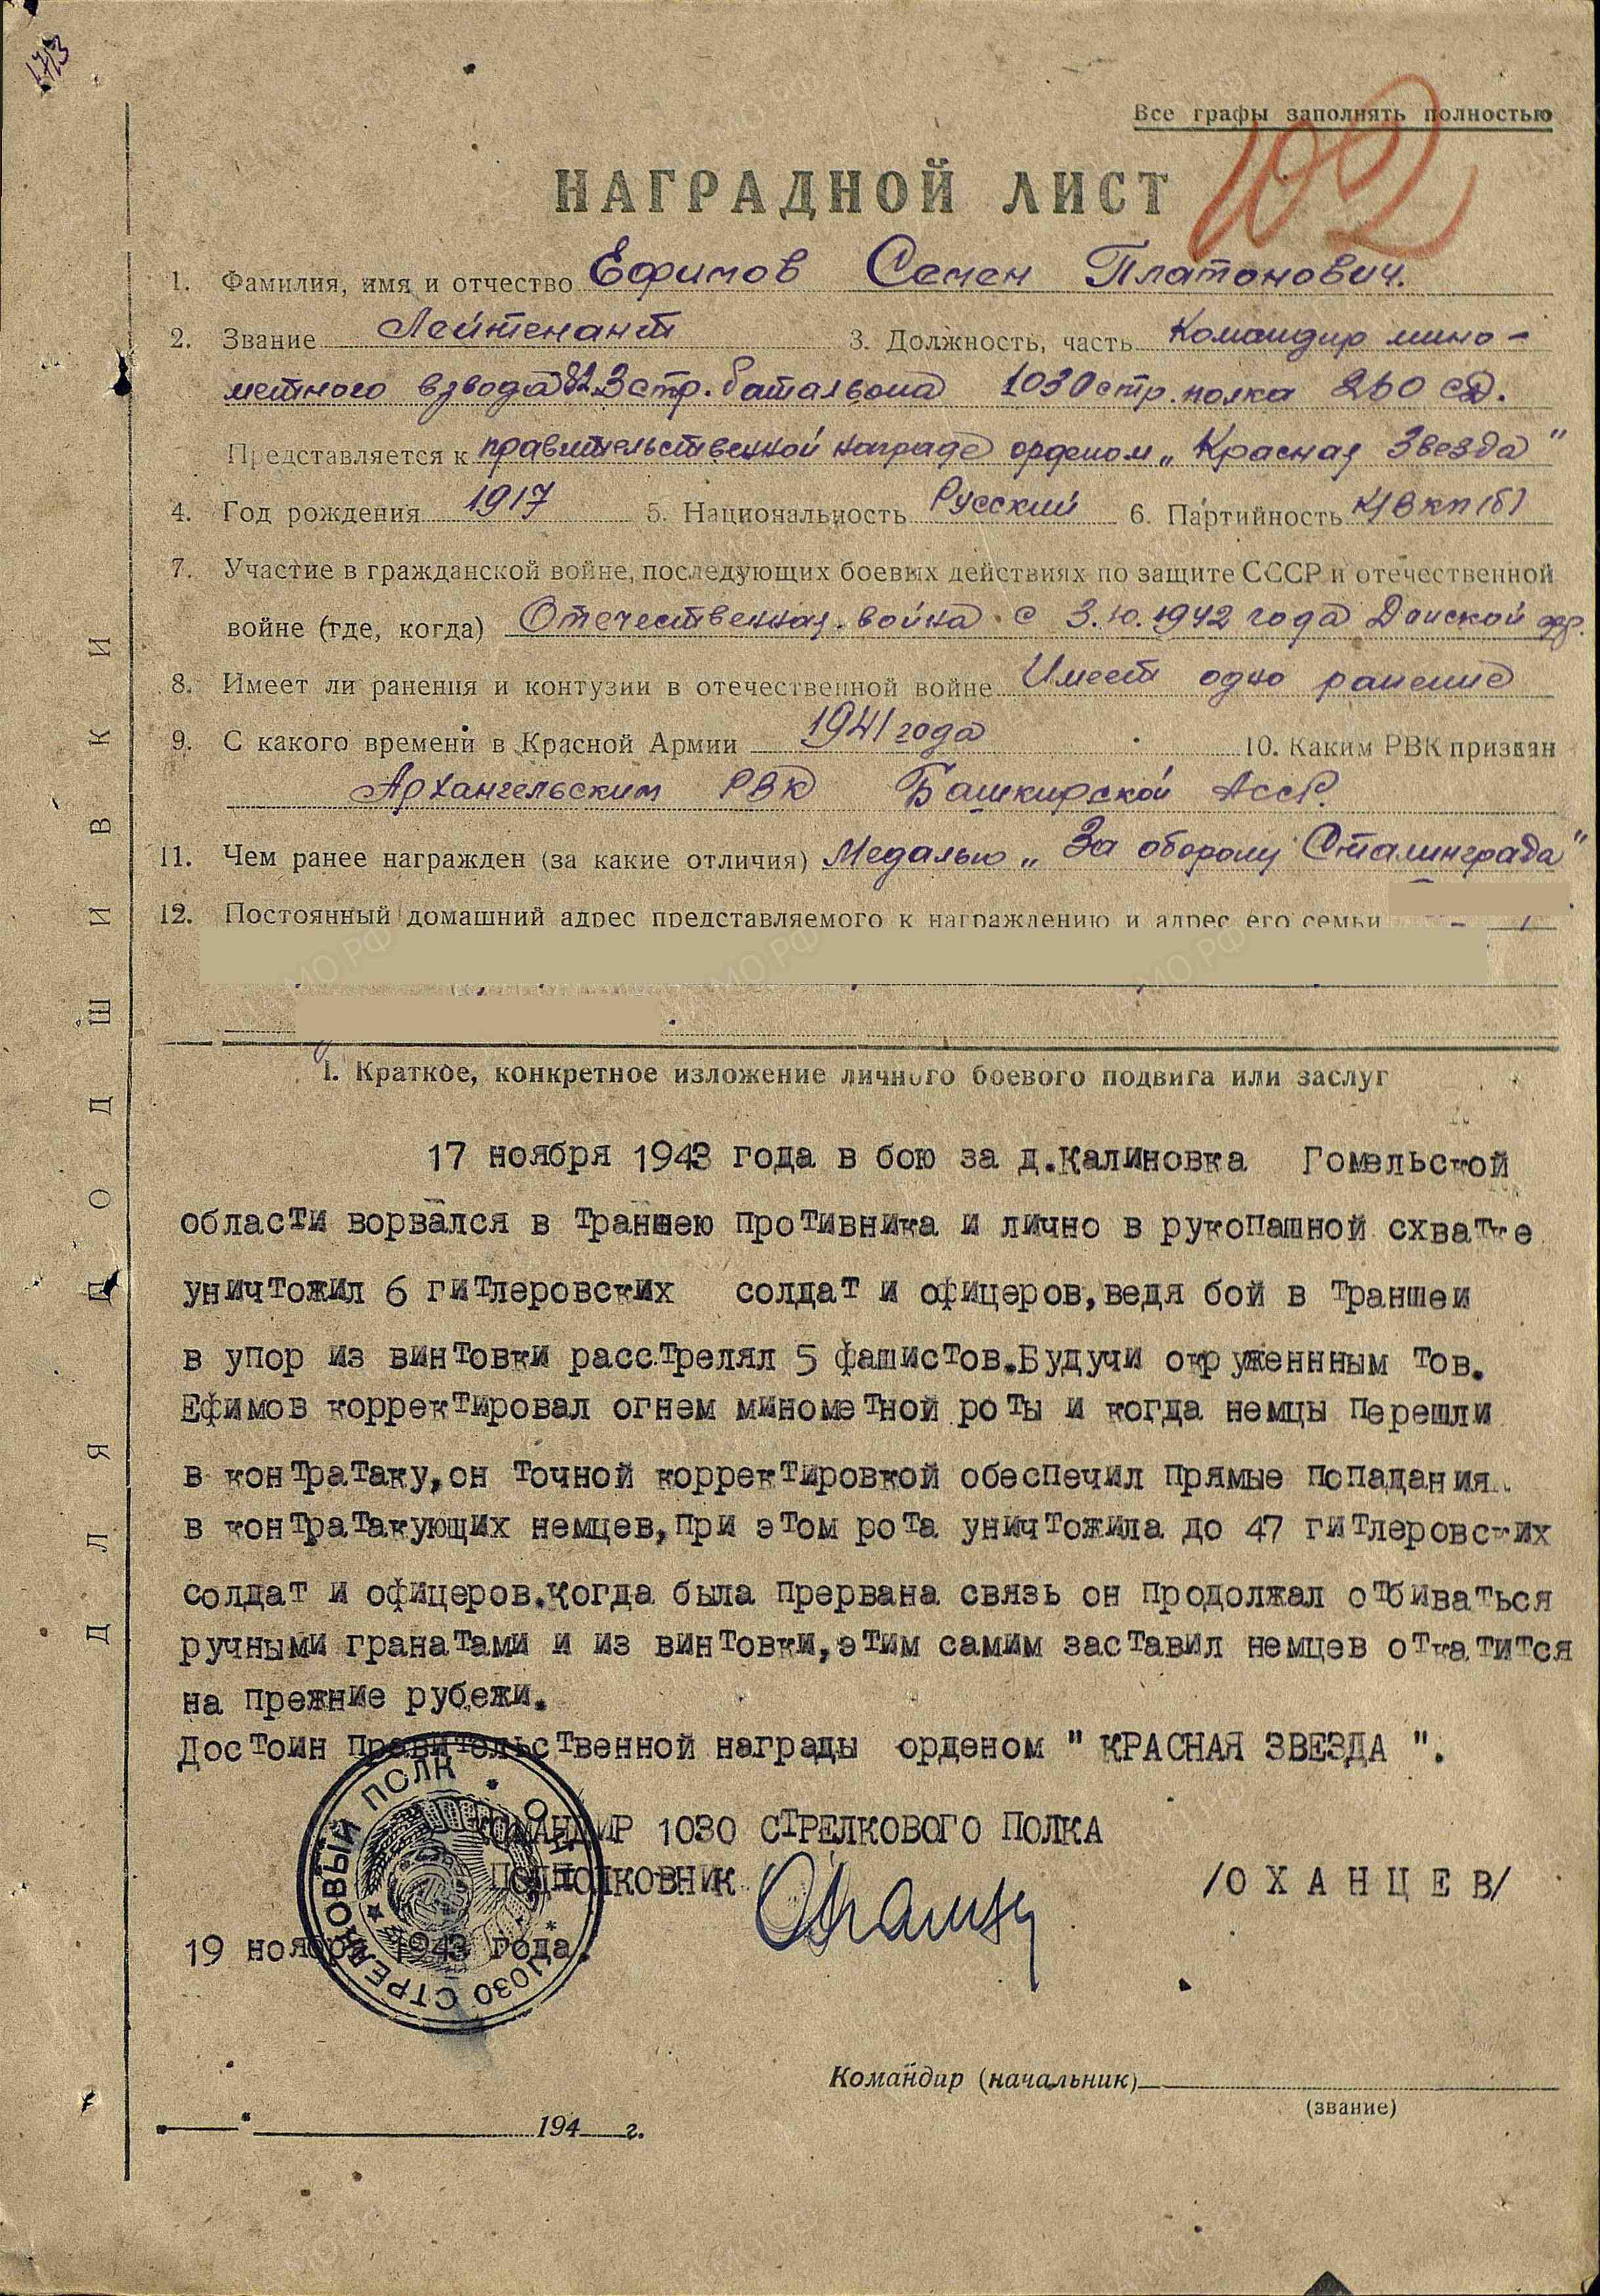 173
Все графы заполнять полностью
102
НАГРАДНОЙ ЛИСТ
1. Фамилия, имя и отчество Ефимов Семен Платонович.
2. Звание Лейтенант 3. Должность, часть Командир мино-
метного взвода 82 3 стр. батальона 1030 стр. полка 260 сд.
Представляется к правительственной награде орденом „Красная Звезда"
4. Год рождения 1917 5. Национальность Русский 6. Партийность К/ВКП(б)
7. Участие в гражданской войне, последующих боевых действиях по защите СССР и отечественной
войне (где, когда) Отечественная война с 3.10.1942 года Донской фр.
8. Имеет ли ранения и контузии в отечественной войне Имеет одно ранение
9. С какого времени в Красной Армии 1941 года 10. Каким РВК призван
Архангельским РВК Башкирской АССР.
11. Чем ранее награжден (за какие отличия) Медалью „За оборону Сталинграда"
12. Постоянный домашний адрес представляемого к награждению и адрес его семьи
1. Краткое, конкретное изложение личного боевого подвига или заслуг
17 ноября 1943 года в бою за д.Калиновка Гомельской
области ворвался в траншею противника и лично в рукопашной схватке
уничтожил 6 гитлеровских солдат и офицеров,ведя бой в траншеи
в упор из винтовки расстрелял 5 фашистов.Будучи окруженнным тов.
Ефимов корректировал огнем минометной роты и когда немцы перешли
в контратаку,он точной корректировкой обеспечил прямые попадания
в контратакующих немцев,при этом рота уничтожила до 47 гитлеровских
солдат и офицеров.когда была прервана связь он продолжал отбиваться
ручными гранатами и из винтовки,этим самим заставил немцев откатится
на прежние рубежи.
Достоин правительственной награды орденом " КРАСНАЯ ЗВЕЗДА ".
КОМАНДИР 1030 СТРЕЛКОВОГО ПОЛКА
ПОДПОЛКОВНИК /О Х А Н Ц Е В/
19 ноября 1943 года.
1030 СТРЕЛКОВЫЙ ПОЛК
Командир (начальник)
(звание)
194 г.
ДЛЯ ПОДШИВКИ